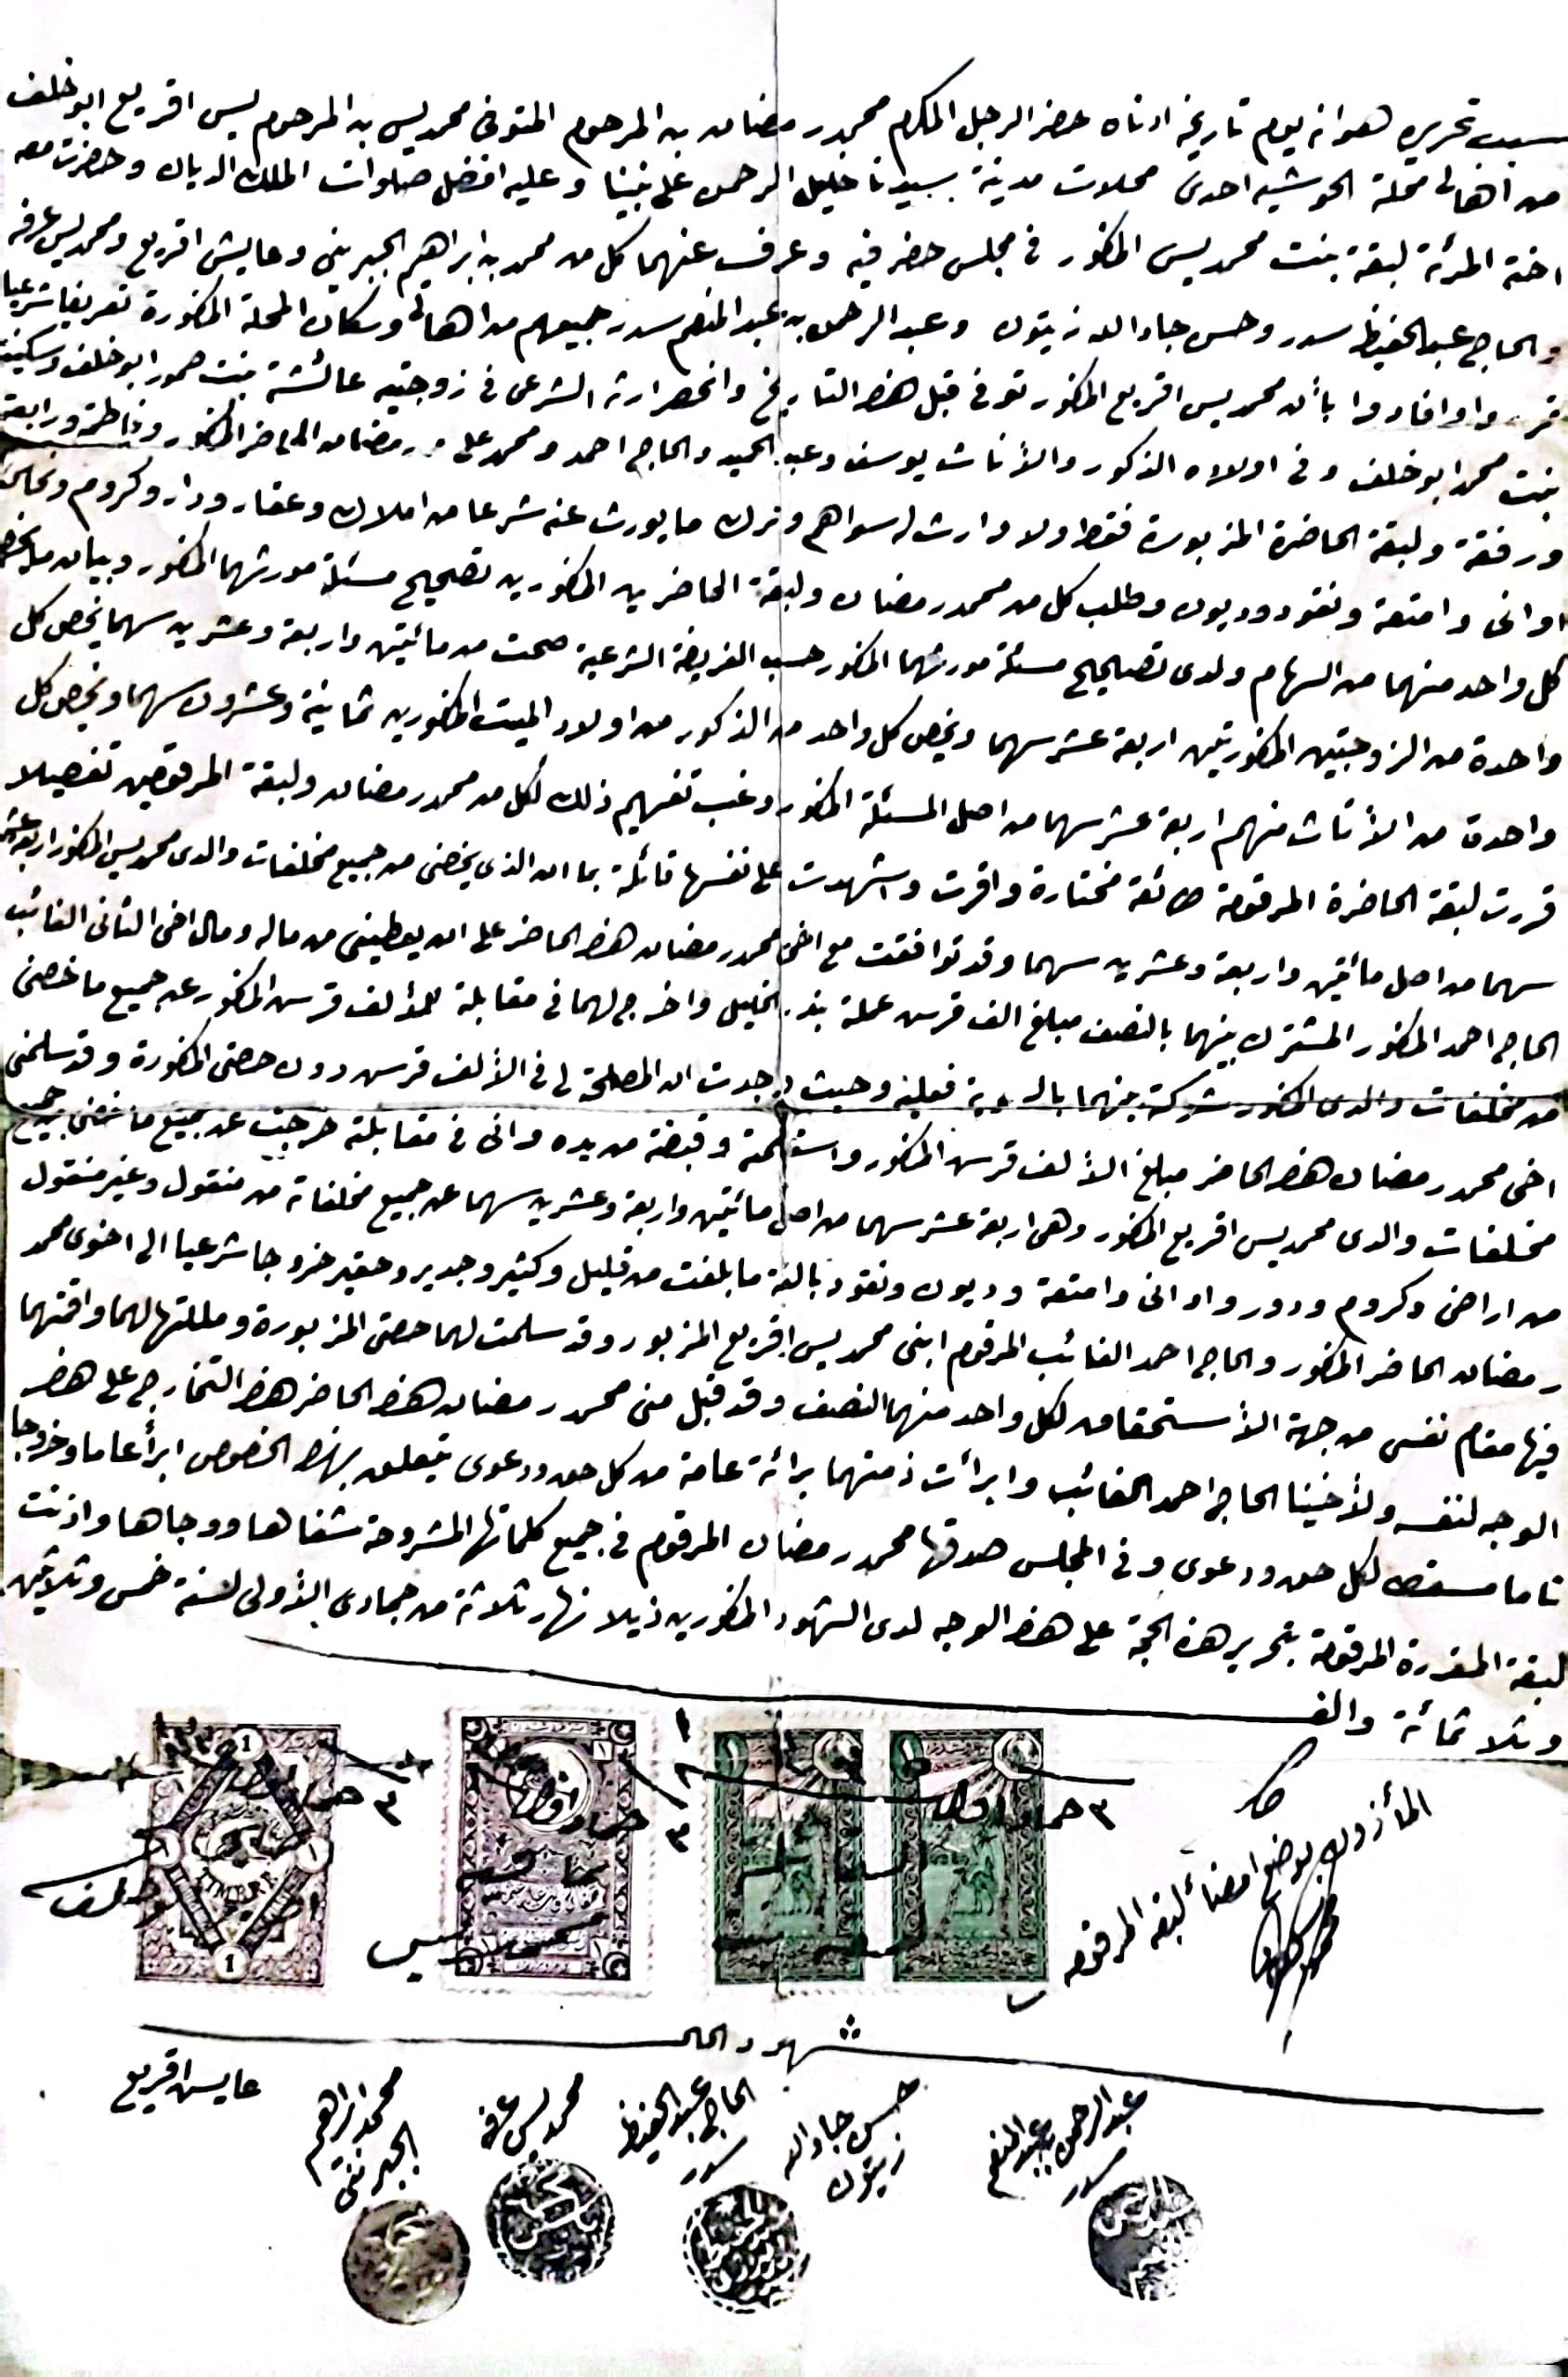 سبب تحريره هو انه يوم تاريخه ادناه حضر الرجل المكرم محمد رمضان بن المرحوم المتوفى محمد يس بن المرحوم يس اقريع ابو خلف
من اهالى محلة الحوشيه احدى محلات مدينة سيدنا خليل الرحمن على نبينا وعليه افضل صلوات الملك الديان وحضرت معه
اخته المرئة لبقة بنت محمد يس المذكور فى مجلس حضر فيه وعرف عنهما كل من محمد بن ابراهيم الجبرينى وعايش اقريع ومحمد يس عرفه
والحاج عبد الحفيظ سدر وحسن جاد الله زيتون وعبد الرحمن بن عبد المنعم سدر جميعهم من اهالى وسكان المحلة المذكورة تعريفا شرعيا
قرروا وافادوا بأن محمد يس اقريع المذكور توفى قبل هذا التاريخ وانحصر ارثه الشرعى فى زوجتيه عائشة بنت حمور ابو خلف وسكينة
بنت محمد ابو خلف وفى اولاده الذكور والأناث يوسف وعبد الحميد والحاج احمد ومحمد على ورمضان الحاضر المذكور وفاطمة ورابعة
ورفقة ولبقة الحاضرة المزبورة فقط ولا وارث له سواهم وترك ما يورث عنه شرعا من املاك وعقار ودار وكروم ونحاس
اوانى وامتعة ونقود وديون وطلب كل من محمد رمضان ولبقة الحاضرين المذكورين تصحيح مسئلة مورثهما المذكور وبيان ما يخص
كل واحد منهما من السهام ولدى تصحيح مسئلة مورثهما المذكور حسب الفريضة الشرعية صحت من مائتين واربعة وعشرين سهما يخص كل
واحدة من الزوجتين المذكورتين اربعة عشر سهما ويخص كل واحد من الذكور من اولاد الميت المذكورين ثمانية وعشرون سهما ويخص كل
واحدة من الأناث منهم اربعة عشر سهما من اصل المسئلة المذكور وغب تفهيم ذلك لكل من محمد رمضان ولبقة المرقومين تفصيلا
قررت لبقة الحاضرة المرقومة طائعة مختارة واقرت واشهدت على نفسها قائلة بما ان الذى يخصنى من جميع مخلفات والدى محمد يس المذكور اربعة عشر
سهما من اصل مائتين واربعة وعشرين سهما وقد توافقت مع اخى محمد رمضان هذا الحاضر على ان يعطينى من ماله ومال اخى الثانى الغائب
الحاج احمد المذكور المشترك بينهما بالنصف مبلغ الف قرش عملة بندر الخليل واخرج لهما فى مقابلة المؤلف قرش المذكور عن جميع ما خصنى
من مخلفات والدى المذكور شركة بينهما بالسوية فعليه وحيث وجدت ان المصلحة لى فى الألف قرش دون حصتى المذكورة وقد سلمنى
اخى محمد رمضان هذا الحاضر مبلغ الألف قرش المذكور واستلمته وقبضته من يده وانى فى مقابلته خرجت عن جميع ما خصنى بجميع
مخلفات والدى محمد يس اقريع المذكور وهى اربعة عشر سهما من اصل مائتين واربعة وعشرين سهما عن جميع مخلفاته من منقول وغير منقول
من اراضى وكروم ودور واوانى وامتعة وديون ونقود بالغة ما بلغت من قليل وكثير وجدير وحقير خروجا شرعيا الى اخوى محمد
رمضان الحاضر المذكور والحاج احمد الغائب المرقوم ابنى محمد يس اقريع المزبور وقد سلمت لهما حصتى المزبورة وملكتها لهما واقمتهما
فيها مقام نفسى من جهة الأستحقاق لكل واحد منهما النصف وقد قبل منى محمد رمضان هذا الحاضر هذا التخارج على هذا
الوجه لنفسه ولأخينا الحاج احمد الغائب وابرأت ذمتهما برائة عامة من كل حق ودعوى يتعلق بهذا الخصوص ابرأ عاما وخروجا
تاما مسقطا لكل حق ودعوى وفى المجلس صدقها محمد رمضان المرقوم فى جميع كلماتها المشروحة شفاها ووجاها واذنت
لبقة المقررة المرقومة بتحرير هذه الحجة على هذا الوجه لدى الشهود المذكورين ذيلا نهار ثلاثة من جمادى الأولى لسنة خمس وثلاثين
وثلاثمائة والف
المأذون بوضع امضاء لبقة المرقومه
٣ جماد اول
٣ جماد اول
٣ جماد اول
شهود الحال
عبد الرحمن بن عبد المنعم سدر
حسن جاد الله زيتون
الحاج عبد الحفيظ سدر
محمد يس عرفه
محمد ابراهيم الجبرينى
عايس اقريع